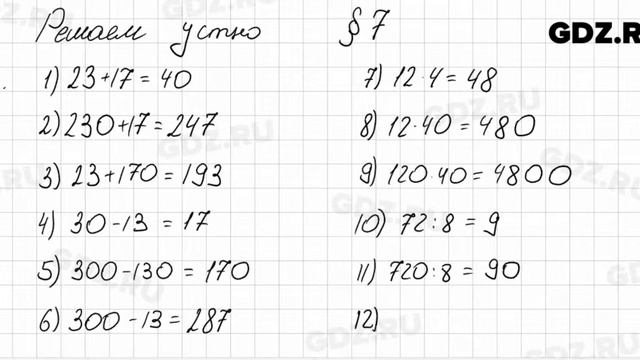 Решаем устно § 7
GDZ.RU
1) 23+17 = 40
2) 230+17 = 247
3) 23+170 = 193
4) 30-13 = 17
5) 300-130 = 170
6) 300-13 = 287
7) 12·4 = 48
8) 12·40 = 480
9) 120·40 = 4800
10) 72:8 = 9
11) 720:8 = 90
12)